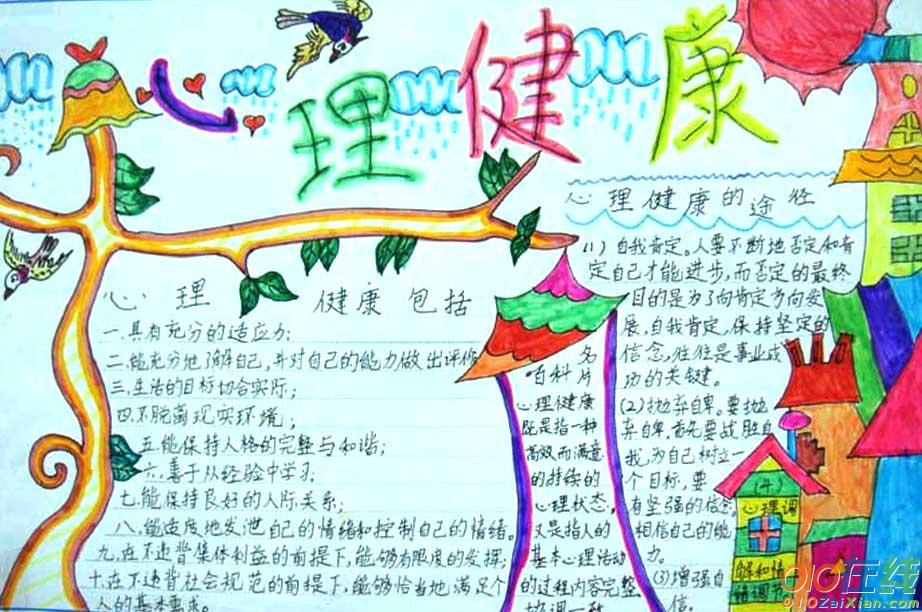 心理健康
心理健康包括
一.具有充分的适应力;
二.能充分地了解自己,并对自己的能力做出评价
三.生活的目标切合实际;
四.不脱离现实环境;
五.能保持人格的完整与和谐;
六.善于从经验中学习;
七.能保持良好的人际关系;
八.能适度地发泄自己的情绪和控制自己的情绪。
九.在不违背集体利益的前提下,能够有限度的发挥;
十.在不违背社会规范的前提下,能够恰当地满足个
人的基本要求。
名
百科片
心理健康
既是指一种
高效而满意
的持续的
心理状态,
又是指人的
基本心理活动
的过程内容完整
协调一致
心理健康的途径
(1)自我肯定。人要不断地否定和肯
定自己才能进步,而否定的最终
目的是为了向肯定方向发
展,自我肯定,保持坚定的
信念,往往是事业成
功的关键。
(2)抛弃自卑。要抛
弃自卑,首先要战胜自
我,为自己树立一
个目标,要
有坚强的信念,
相信自己的能
力。
(3)增强自
信。
(4)
心理调
解和情
绪调节
010在线
010ZaiXian.com